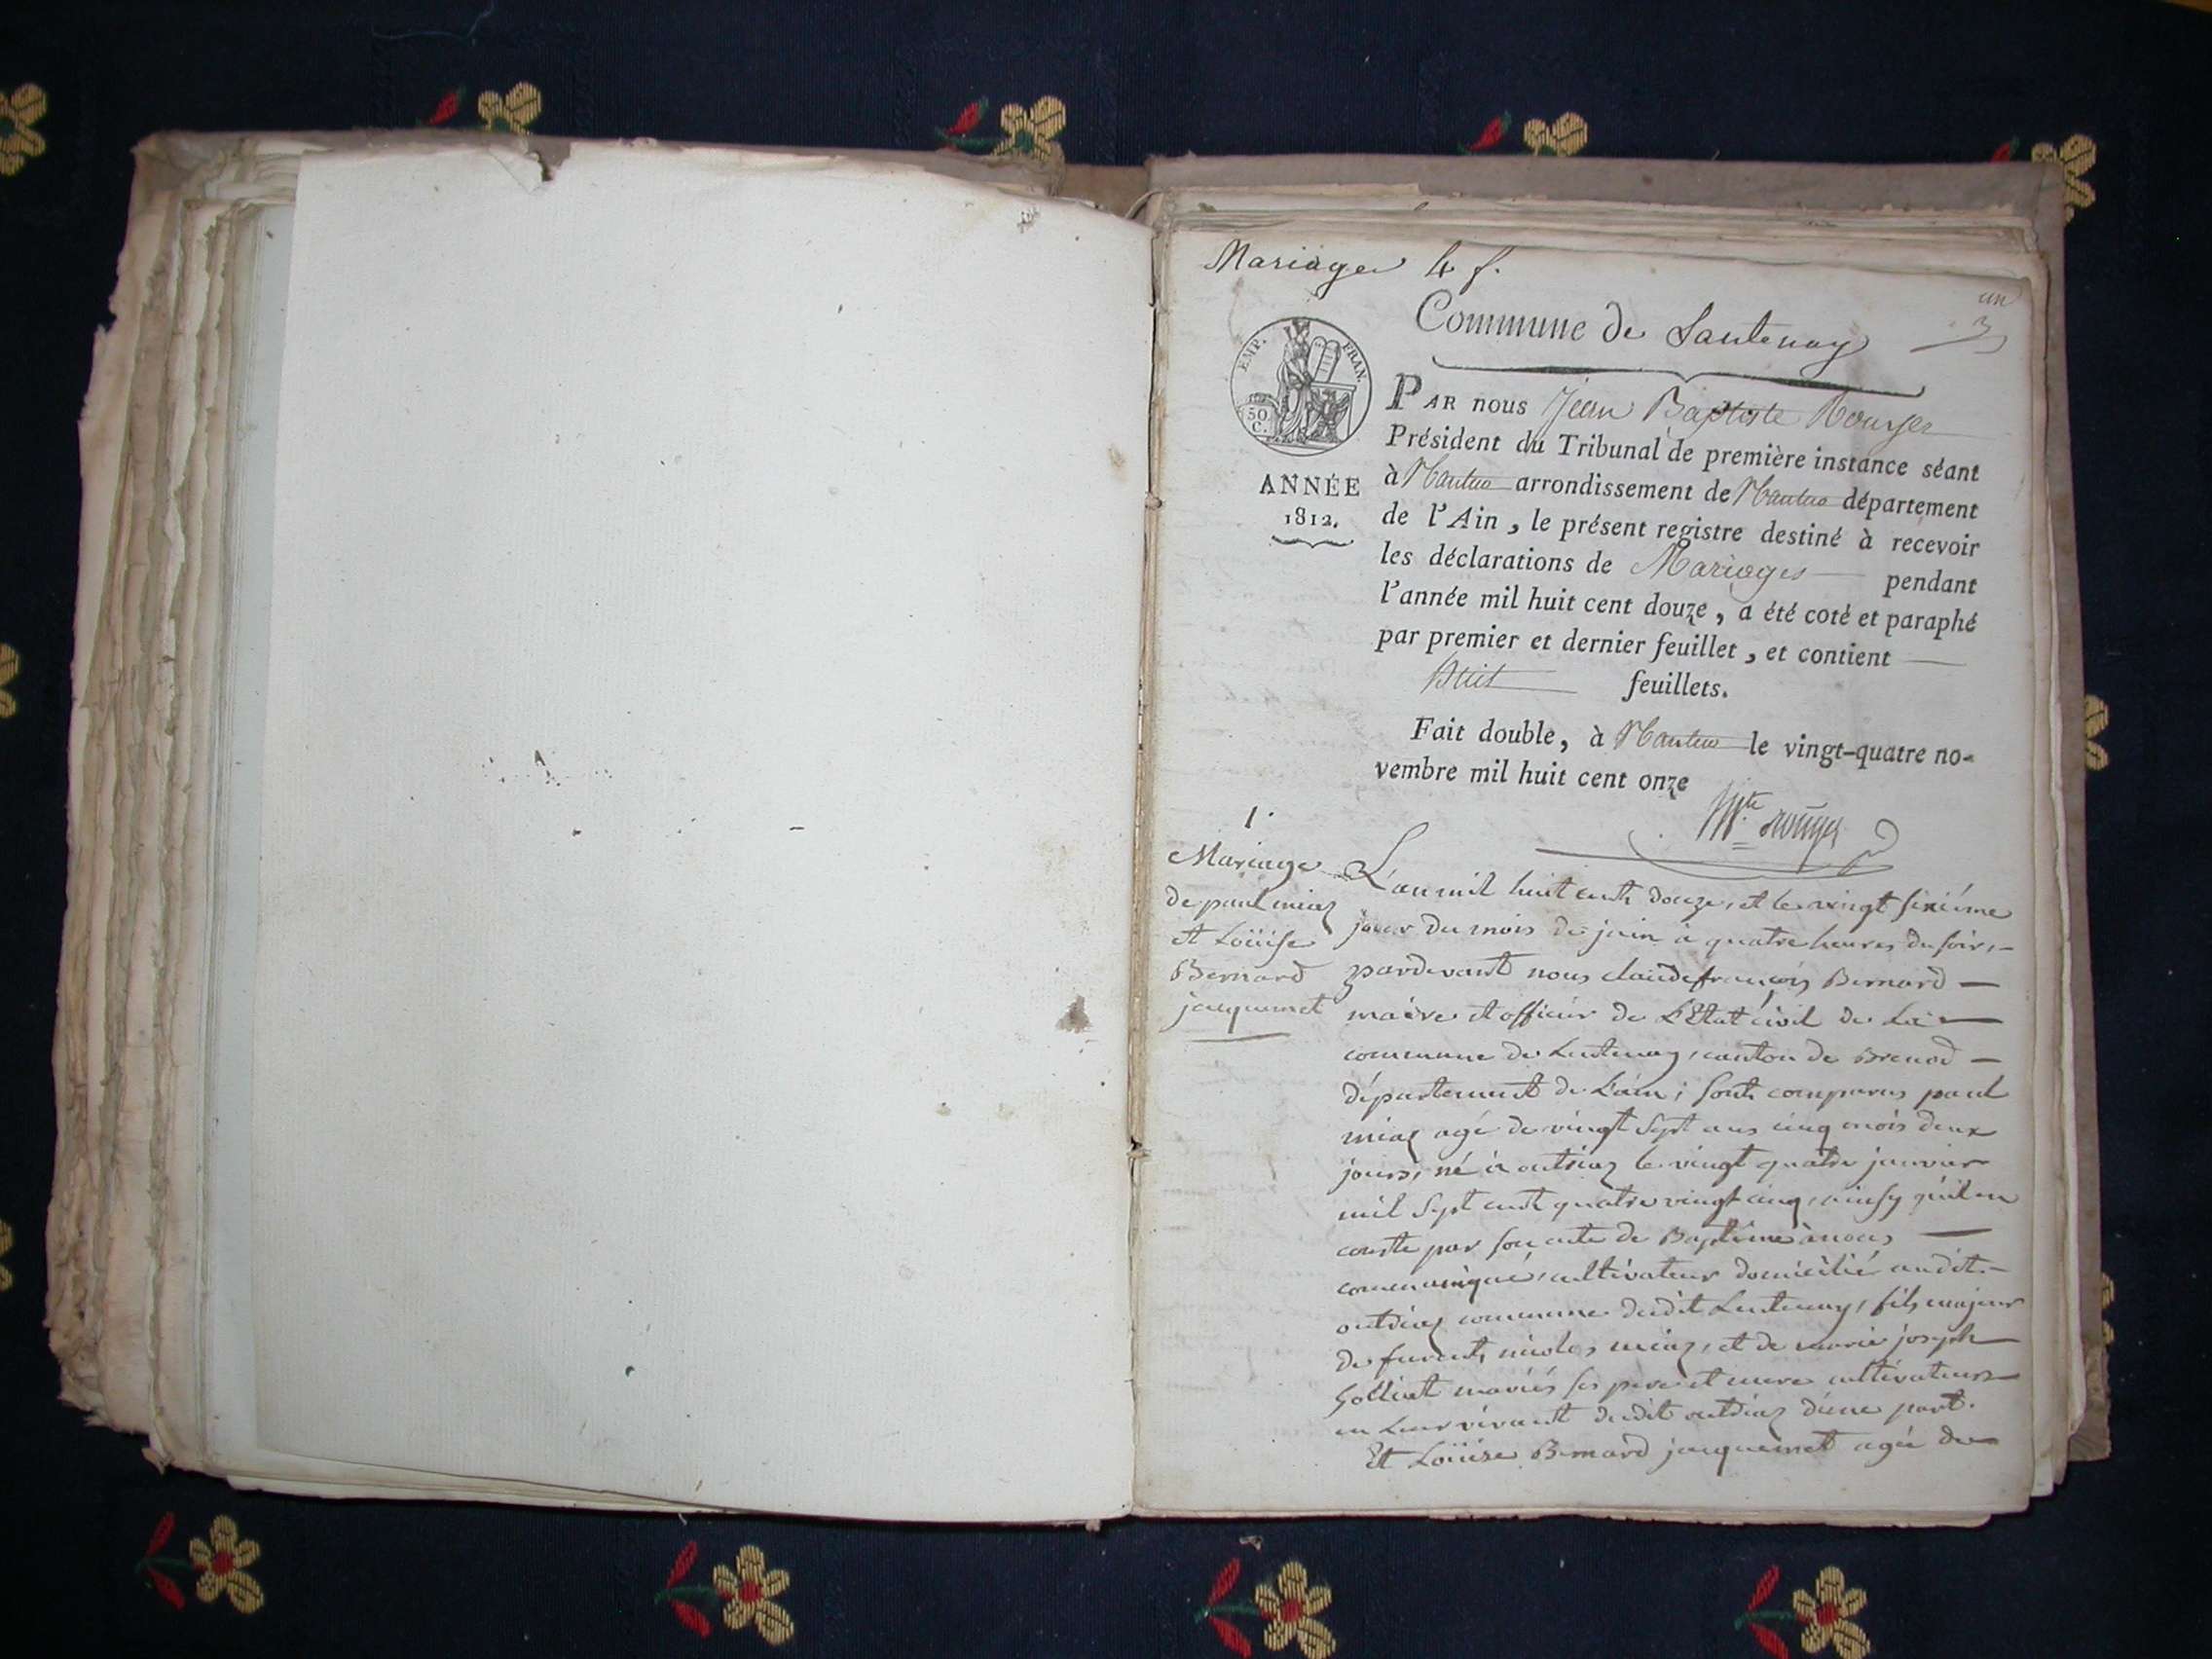 Mariages 4 f.
un
Commune de Lantenay
EMP. FRAN.
50
C.
ANNÉE
1812.
PAR nous Jean Baptiste Rouyer
Président du Tribunal de première instance séant
à Nantua arrondissement de Nantua département
de l'Ain, le présent registre destiné à recevoir
les déclarations de Mariages pendant
l'année mil huit cent douze, a été coté et paraphé
par premier et dernier feuillet, et contient
huit feuillets.
Fait double, à Nantua le vingt-quatre no-
vembre mil huit cent onze
Rouyer
1.
Mariage
de paul miaz
et Loüise
Bernard
jacquemet
L'an mil huit cent douze, et le vingt sixiéme
jour du mois de juin à quatre heures du soir, -
pardevant nous claude françois Bernard —
maire et officier de L'Etat civil de La —
commune de Lentenay, canton de Brenod —
département de L'ain; sont comparus paul
miaz agé de vingt sept ans cinq mois deux
jours, né à outriaz le vingt quatre janvier
mil sept cent quatre vingt cinq, ainsy qu'il en
conste par son acte de Baptême à nous —
communiqué, cultivateur domicilié audit -
outriaz commune dudit Lentenay, fils majeur
de furent nicolas miaz, et de marie joseph
Golliat mariés ses pere et mere cultivateurs
en Leur vivant dudit outriaz d'une part.
Et Loüise Bernard jacquemet agée de